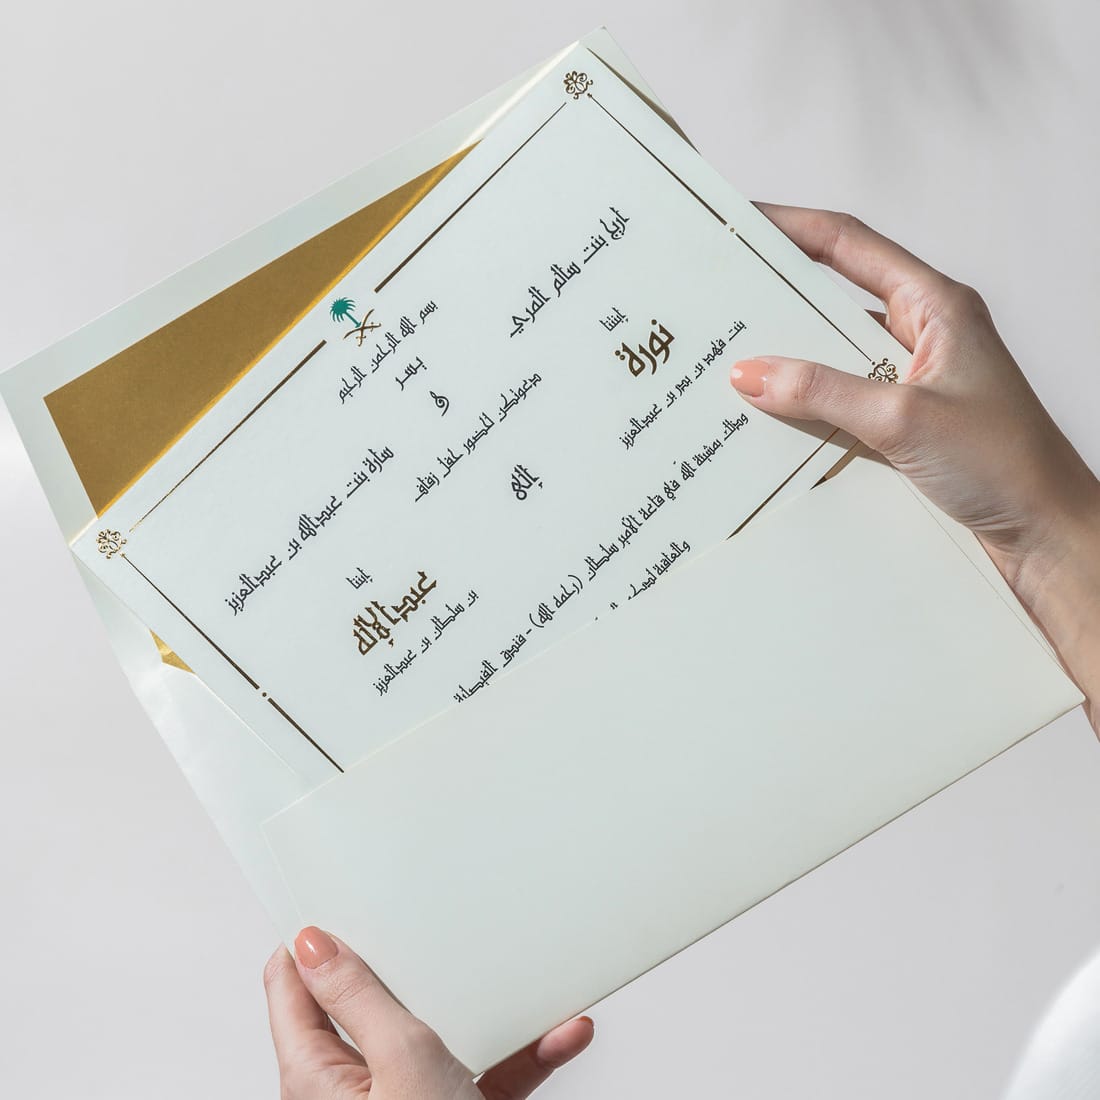 بسم الله الرحمن الرحيم
يسر
أريج بنت سالم المري
و
سارة بنت عبدالله بن عبدالعزيز
دعوتكن لحضور حفل زفاف
ابنتنا
نورة
بنت فهد بن بدر بن عبدالعزيز
إلى
ابننا
عبدالإله
بن سلطان بن عبدالعزيز
وذلك بمشيئة الله في قاعة الأمير سلطان (رحمه الله) - فندق الفيصلية
والعاقبة